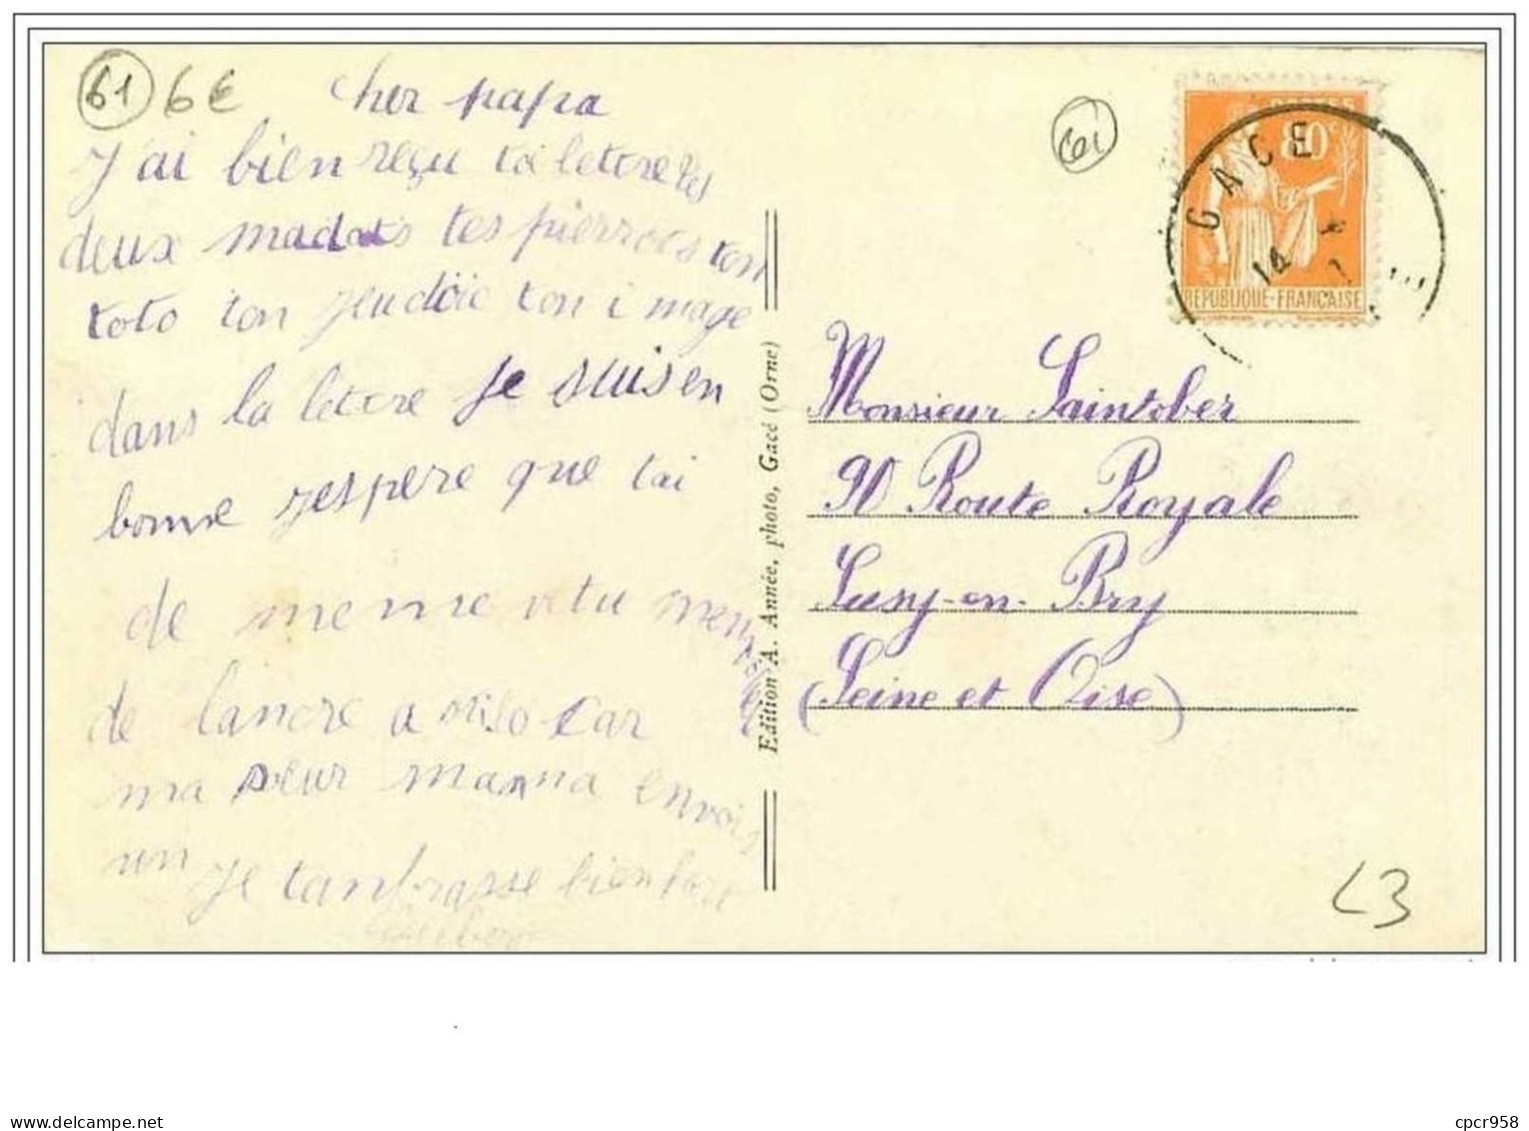 61 6€
cher papa
J'ai bien reçu ta letere tes
deux madats tes pierrots ton
toto ton jeudoie ton i mage
dans la letere je suis en
bonne jespere que tai
de meme
de lancre a stilo car
ma seur manna envois
un je tanbrasse bien fort
Edition A. Année, photo, Gacé (Orne)
61
80c
GACE
14
REPUBLIQUE-FRANÇAISE
Monsieur Saintober
90 Route Royale
Susy-en-Bry
(Seine et Oise)
L3
cpcr958